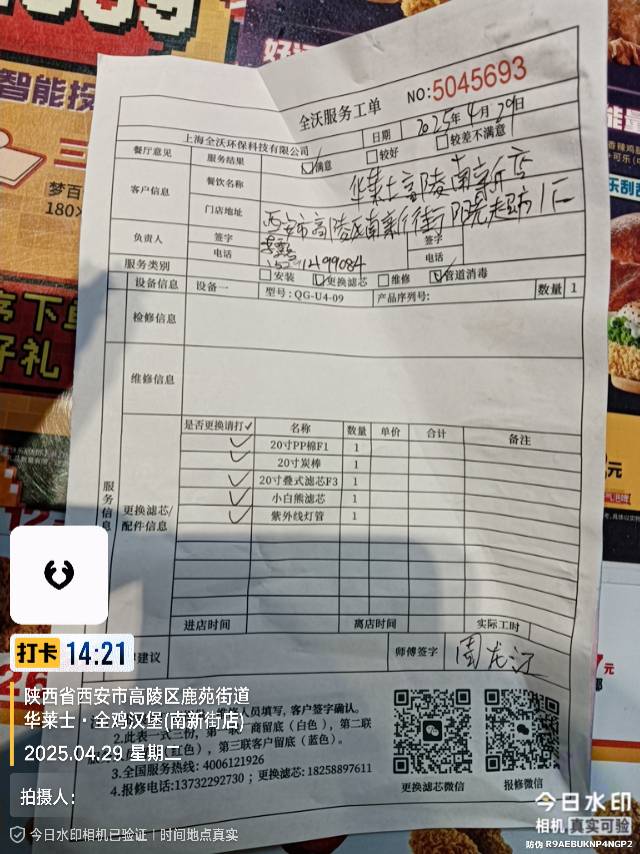 智能按
三
梦百
180×
好
能量
香辣鸡
+可乐
乐刮刮
序下单
好礼
元
全沃服务工单 NO:5045693
上海全沃环保科技有限公司 日期 2025年4月29日
餐厅意见 服务结果 ☑满意 □较好 □较差不满意
客户信息 餐饮名称 华莱士高陵南新店
门店地址 西安市高陵区南新街
负责人 签字 签字
电话 电话
服务类别 □安装 ☑更换滤芯 □维修 ☑管道消毒
设备信息 设备一 型号:QG-U4-09 产品序列号: 数量 1
检修信息
维修信息
服务信息
更换滤芯/配件信息
是否更换请打✓ 名称 数量 单价 合计 备注
✓ 20寸PP棉F1 1
✓ 20寸炭棒 1
✓ 20寸叠式滤芯F3 1
✓ 小白熊滤芯 1
✓ 紫外线灯管 1
进店时间 离店时间 实际工时
建议 师傅签字 周龙江
人员填写,客户签字确认。
2.此表一式三份,第一联 商留底(白色),第二联
红色),第三联客户留底(蓝色)。
3.全国服务热线:4006121926
4.报修电话:13732292730;更换滤芯:18258897611
更换滤芯微信 报修微信
打卡 14:21
陕西省西安市高陵区鹿苑街道
华莱士·全鸡汉堡(南新街店)
2025.04.29 星期二
拍摄人:
今日水印相机已验证 | 时间地点真实
今日水印
相机 真实可验
防伪 R9AEBUKNP4NGP2